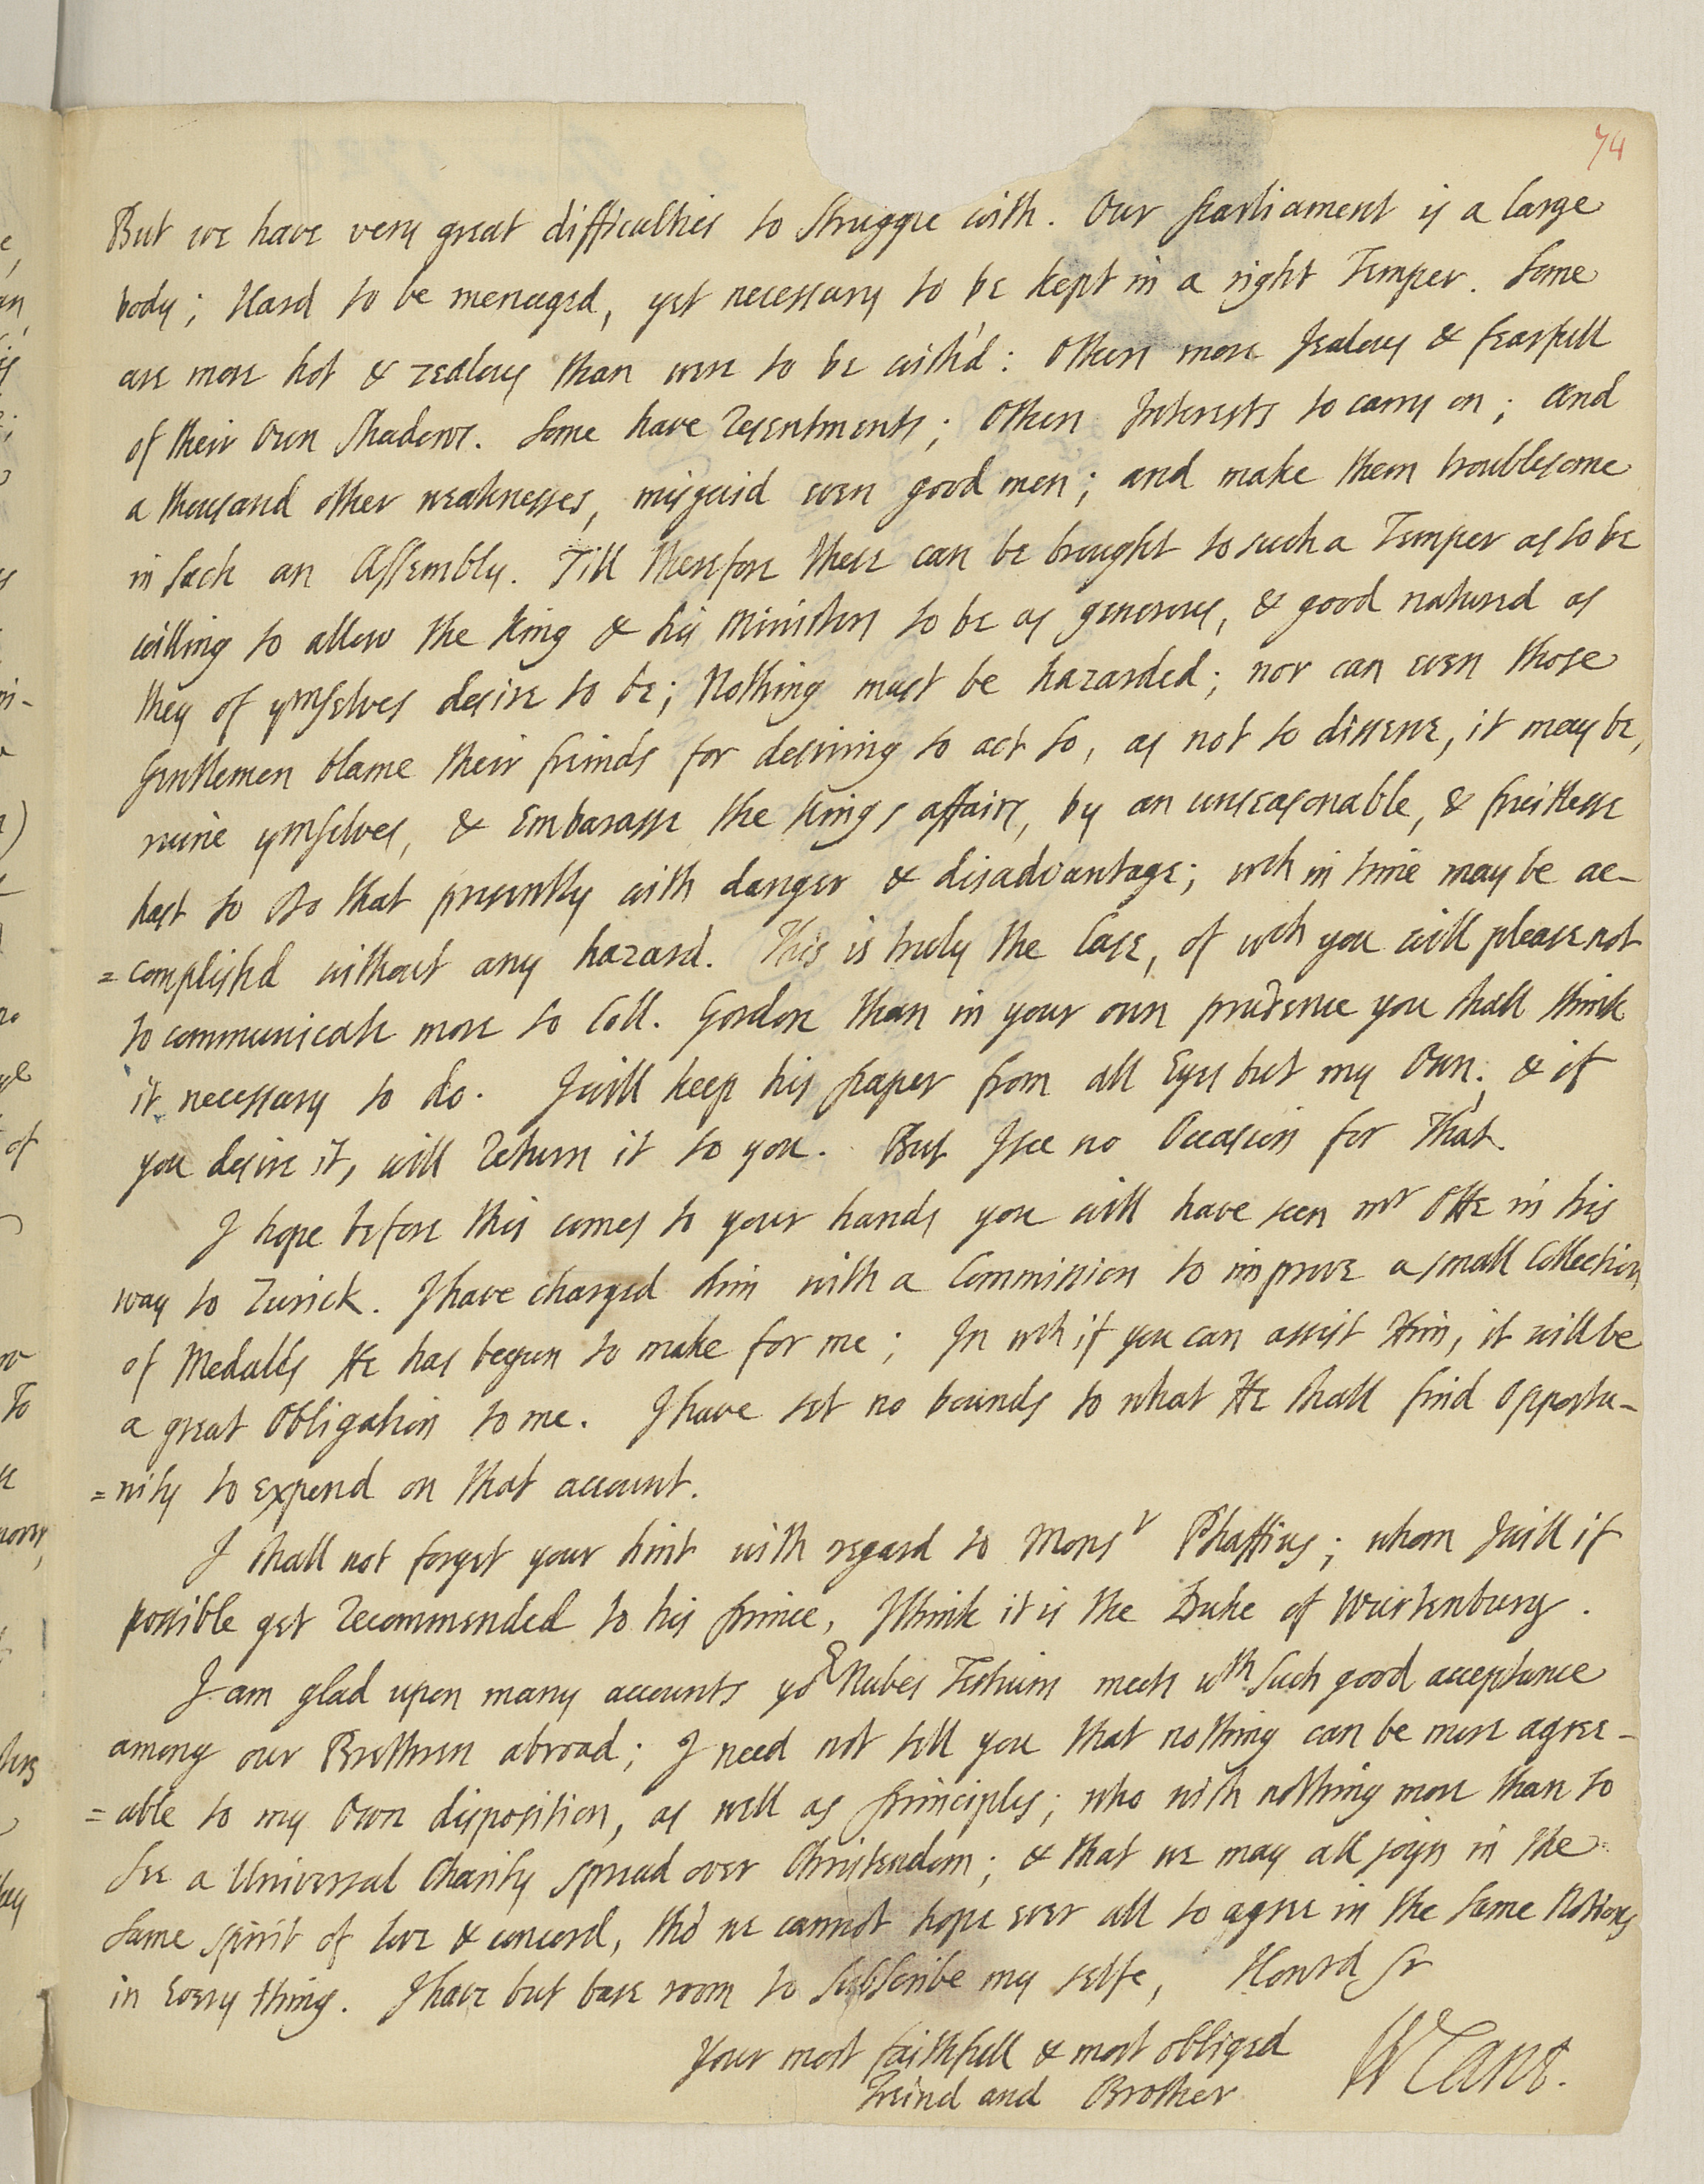 74
But we have very great difficulties to struggle with. Our Parliament is a large
body; Hard to be menaged, yet necessary to be kept in a right Temper. Some
are more hot & zealous than were to be wish'd: Others more Jealous & fearfull
of their Own Shadows. Some have Resentments; Others Interests to carry on; and
a thousand other weaknesses, misguid even good men; and make them troublesome
in such an Assembly. Till therefore these can be brought to such a Temper as to be
willing to allow the King & his Ministers to be as generous, & good natured as
they of ymselves desire to be; Nothing must be hazarded; nor can even those
Gentlemen blame their freinds for desiring to act so, as not to disserve, it may be,
ruine ymselves, & Embarasse the Kings affairs, by an unseasonable, & fruitlesse
hast to do that presently with danger & disadvantage; wch in time may be ac-
=complish'd without any hazard. This is truly the Case, of wch you will please not
to communicate more to Coll. Gordon than in your own prudence you shall think
it necessary to do. I will keep his paper from all Eyes but my Own; & if
you desire it, will Return it to you. But I see no Occasion for That.
I hope before this comes to your hands you will have seen mr Otte in his
way to Zurick. I have charged him with a Commission to improve a small Collection
of Medalls He has begun to make for me; In wch if you can assist Him, it will be
a great Obligation to me. I have set no bounds to what He shall find Opportu-
=nity to expend on that account.
I shall not forget your hint with regard to Monsr Phaffius; whom I will if
possible get Recommended to his prince, I think it is the Duke of Wurtenburg.
I am glad upon many accounts yor Nubes Testium meets wth such good acceptance
among our Brethren abroad; I need not tell you that nothing can be more agree-
=able to my Own disposition, as well as principles; who wish nothing more than to
See a Universal Charity spread over Christendom; & that we may all joyn in the
Same spirit of love & concord, tho' we cannot hope ever all to agree in the same Notions
in Every thing. I have but bare room to Subscribe my selfe, Honrd Sr
Your most faithfull & most obliged
Freind and Brother
W Cant.